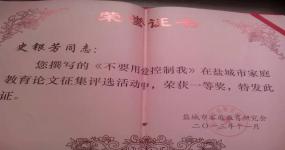 荣誉证书
史银芳同志：
您撰写的《不要用爱控制我》在盐城市家庭
教育论文征集评选活动中，荣获一等奖，特发此
证。
盐城市家庭教育研究会
二〇一三年十一月